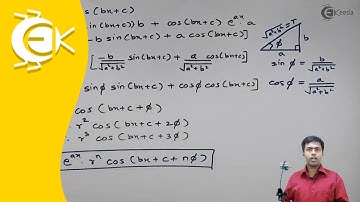 s (bx+c)
sin(bx+c)) b + cos(bx+c) e^ax · a
-b sin(bx+c) + a cos(bx+c)]
[-b/√a²+b² sin(bx+c) + a/√a²+b² cos(bx+c)]
sinφ sin(bx+c) + cosφ cos(bx+c)]
cos (bx+c+φ)
r² cos (bx+c+2φ)
r³ cos (bx+c+3φ)
e^ax · r^n cos (bx+c+nφ)
√a²+b² = r
b
φ
a
sin φ = b/√a²+b²
cos φ = a/√a²+b²
Ekeeda